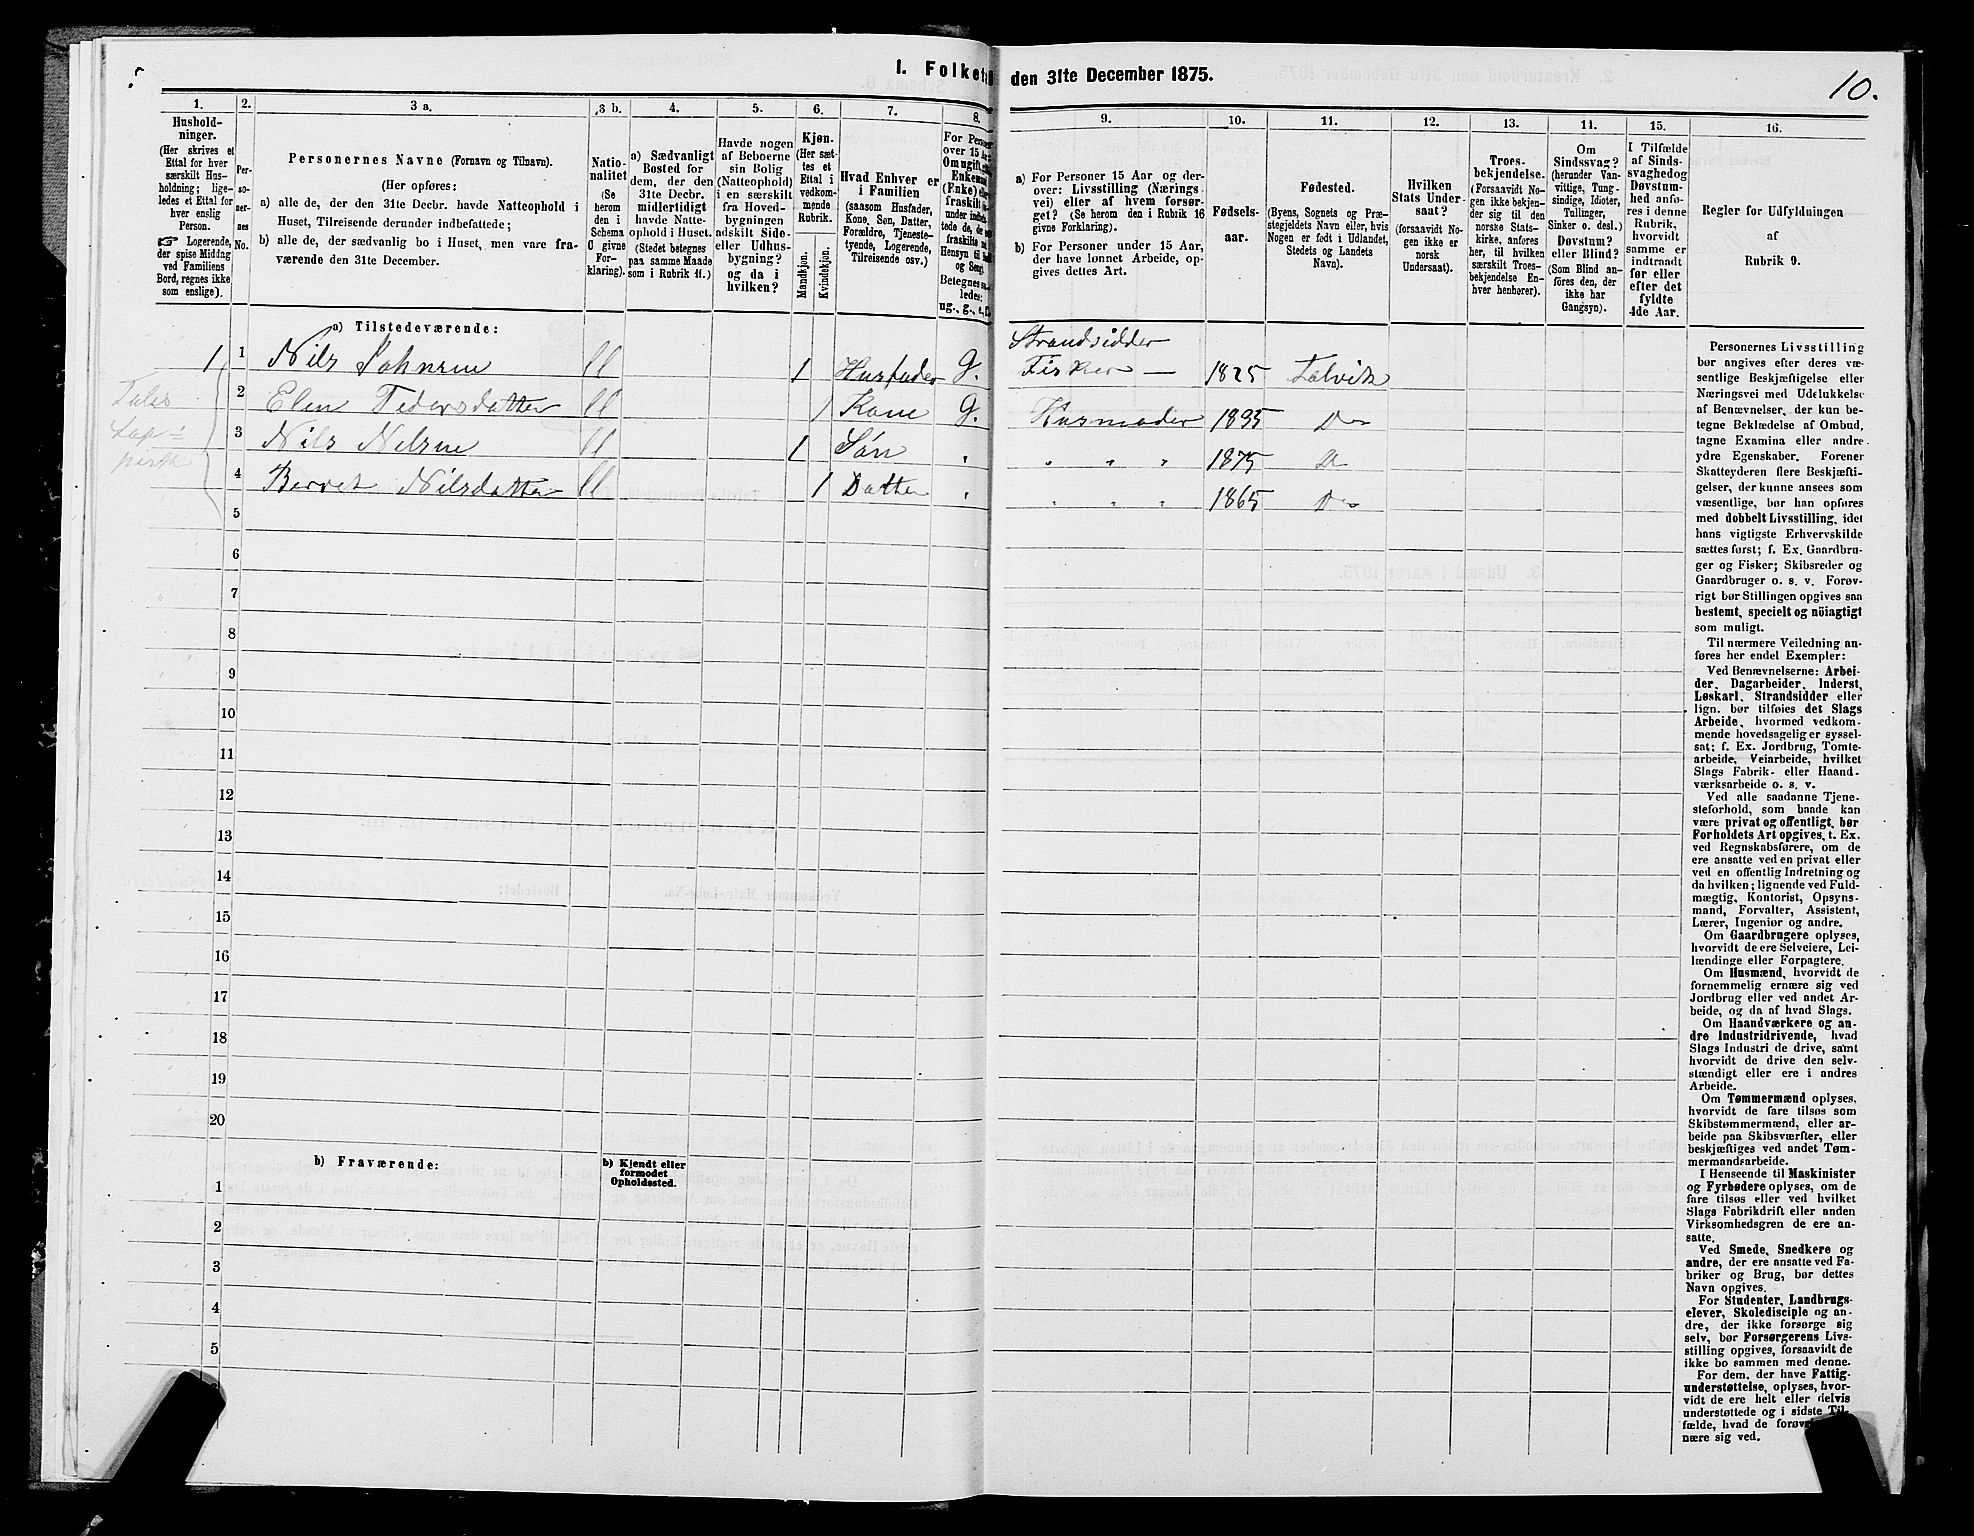 I. Folket den 31te December 1875.
10.
1.
Hushold-
ninger.
(Her skrives et
Ettal for hver
særskilt Hus-
holdning; lige-
ledes et Ettal for
hver enslig
Person.
☞ Logerende,
der spise Middag
ved Familiens
Bord, regnes ikke
som enslige).
2.
Per-
so-
ner-
nes
No.
3 a.
Personernes Navne (Fornavn og Tilnavn).
(Her opføres:
a) alle de, der den 31te Decbr. havde Natteophold i
Huset, Tilreisende derunder indbefattede;
b) alle de, der sædvanlig bo i Huset, men vare fra-
værende den 31te December.
3 b.
Natio-
nalitet
(Se
herom
den i
Schema
C givne
For-
klaring).
4.
a) Sædvanligt
Bosted for
dem, der den
31te Decbr.
midlertidigt
havde Natte-
ophold i Huset.
(Stedet betegnes
paa samme Maade
som i Rubrik 11.)
5.
Havde nogen
af Beboerne
sin Bolig
(Natteophold)
i en særskilt
fra Hoved-
bygningen
adskilt Side-
eller Udhus-
bygning?
og da i
hvilken?
6.
Kjøn.
(Her sæt-
tes et
Ettal i
vedkom-
mende
Rubrik.
Mandkjøn.
Kvindekjøn.
7.
Hvad Enhver er
i Familien
(saasom Husfader,
Kone, Søn, Datter,
Forældre, Tjeneste-
tyende, Logerende,
Tilreisende osv.)
8.
For Pers
over 15 A
Om ugift,
Enkem
(Enke)
fraskilt
under
tede de,
fraskilte
Hensyn til
og Seng.
Betegnes
ledes:
ug., g., e.,
9.
a) For Personer 15 Aar og der-
over: Livsstilling (Nærings
vei) eller af hvem forsør-
get? (Se herom den i Rubrik 16
givne Forklaring).
b) For Personer under 15 Aar,
der have lønnet Arbeide, op-
gives dettes Art.
10.
Fødsels-
aar.
11.
Fødested.
(Byens, Sognets og Præ-
stegjeldets Navn eller, hvis
Nogen er født i Udlandet,
Stedets og Landets
Navn).
12.
Hvilken
Stats Under-
saat?
(forsaavidt No-
gen ikke er
norsk
Undersaat).
13.
Troes-
bekjendelse.
(Forsaavidt No-
gen ikke bekjen-
der sig til den
norske Stats-
kirke, anføres
her, til hvilken
særskilt Troes-
bekjendelse En-
hver henhører).
14.
Om
Sindssvag?
(herunder Van-
vittige, Tung-
sindige, Idioter,
Tullinger,
Sinker o. desl.)
Døvstum?
eller Blind?
(Som Blind an-
føres den, der
ikke har
Gangsyn).
15.
I Tilfælde
af Sinds-
svaghed og
Døvstum-
hed anfø-
res i denne
Rubrik,
hvorvidt
samme er
indtraadt
før eller
efter det
fyldte
4de Aar.
16.
Regler for Udfyldningen
af
Rubrik 9.
a) Tilstedeværende:
1 1 Nils Johnsen ll 1 Husfader G. Strandsidder
Fisker — 1825 Talvik
2 Elen Pedersdatter ll 1 Kone G. Husmoder 1835 Do
3 Nils Nilsen ll 1 Søn " " " " 1875 Do
4 Berret Nilsdatter ll 1 Datter " " " " 1865 Do
Tales
Lap-
pisk
5
6
7
8
9
10
11
12
13
14
15
16
17
18
19
20
b) Fraværende:
b) Kjendt eller
formodet
Opholdssted.
1
2
3
4
5
Personernes Livsstilling
bør angives efter deres væ-
sentlige Beskjæftigelse eller
Næringsvei med Udelukkelse
af Benævnelser, der kun be-
tegne Beklædelse af Ombud,
tagne Examina eller andre
ydre Egenskaber. Forener
Skatteyderen flere Beskjæfti-
gelser, der kunne ansees som
væsentlige, bør han opføres
med dobbelt Livsstilling, idet
hans vigtigste Erhvervskilde
sættes først; f. Ex. Gaardbru-
ger og Fisker; Skibsreder og
Gaardbruger o. s. v. Forøv-
rigt bør Stillingen opgives saa
bestemt, specielt og nöiagtigt
som muligt.
Til nærmere Veiledning an-
føres her endel Exempler:
Ved Benævnelserne: Arbei-
der, Dagarbeider, Inderst,
Løskarl, Strandsidder eller
lign. bør tilføies det Slags
Arbeide, hvormed vedkom-
mende hovedsagelig er syssel-
sat; f. Ex. Jordbrug, Tomte-
arbeide, Veiarbeide, hvilket
Slags Fabrik- eller Haand-
værksarbeide o. s. v.
Ved alle saadanne Tjene-
steforhold, som baade kan
være privat og offentligt, bør
Forholdets Art opgives, t. Ex.
ved Regnskabsførere, om de
ere ansatte ved en privat eller
ved en offentlig Indretning og
da hvilken; lignende ved Fuld-
mægtig, Kontorist, Opsyns-
mand, Forvalter, Assistent,
Lærer, Ingeniør og andre.
Om Gaardbrugere oplyses,
hvorvidt de ere Selveiere, Lei-
lændinge eller Forpagtere.
Om Husmænd, hvorvidt de
fornemmelig ernære sig ved
Jordbrug eller ved andet Ar-
beide, og da af hvad Slags.
Om Haandværkere og an-
dre Industridrivende, hvad
Slags Industri de drive, samt
hvorvidt de drive den selv-
stændigt eller ere i andres
Arbeide.
Om Tømmermænd oplyses,
hvorvidt de fare tilsøs som
Skibstømmermænd, eller ar-
beide paa Skibsværfter, eller
beskjæftiges ved andet Tøm-
mermandsarbeide.
I Henseende til Maskinister
og Fyrbødere oplyses, om de
fare tilsøs eller ved hvilket
Slags Fabrikdrift eller anden
Virksomhedsgren de ere an-
satte.
Ved Smede, Snedkere og
andre, der ere ansatte ved Fa-
briker og Brug, bør dettes
Navn opgives.
For Studenter, Landbrugs-
elever, Skoledisciple og an-
dre, der ikke forsørge sig
selv, bør Forsørgerens Livs-
stilling opgives, forsaavidt de
ikke bo sammen med denne.
For dem, der have Fattig-
understøttelse, oplyses, hvor-
vidt de ere helt eller delvis
understøttede og i sidste Til-
fælde, hvad de forøv
nære sig ved.